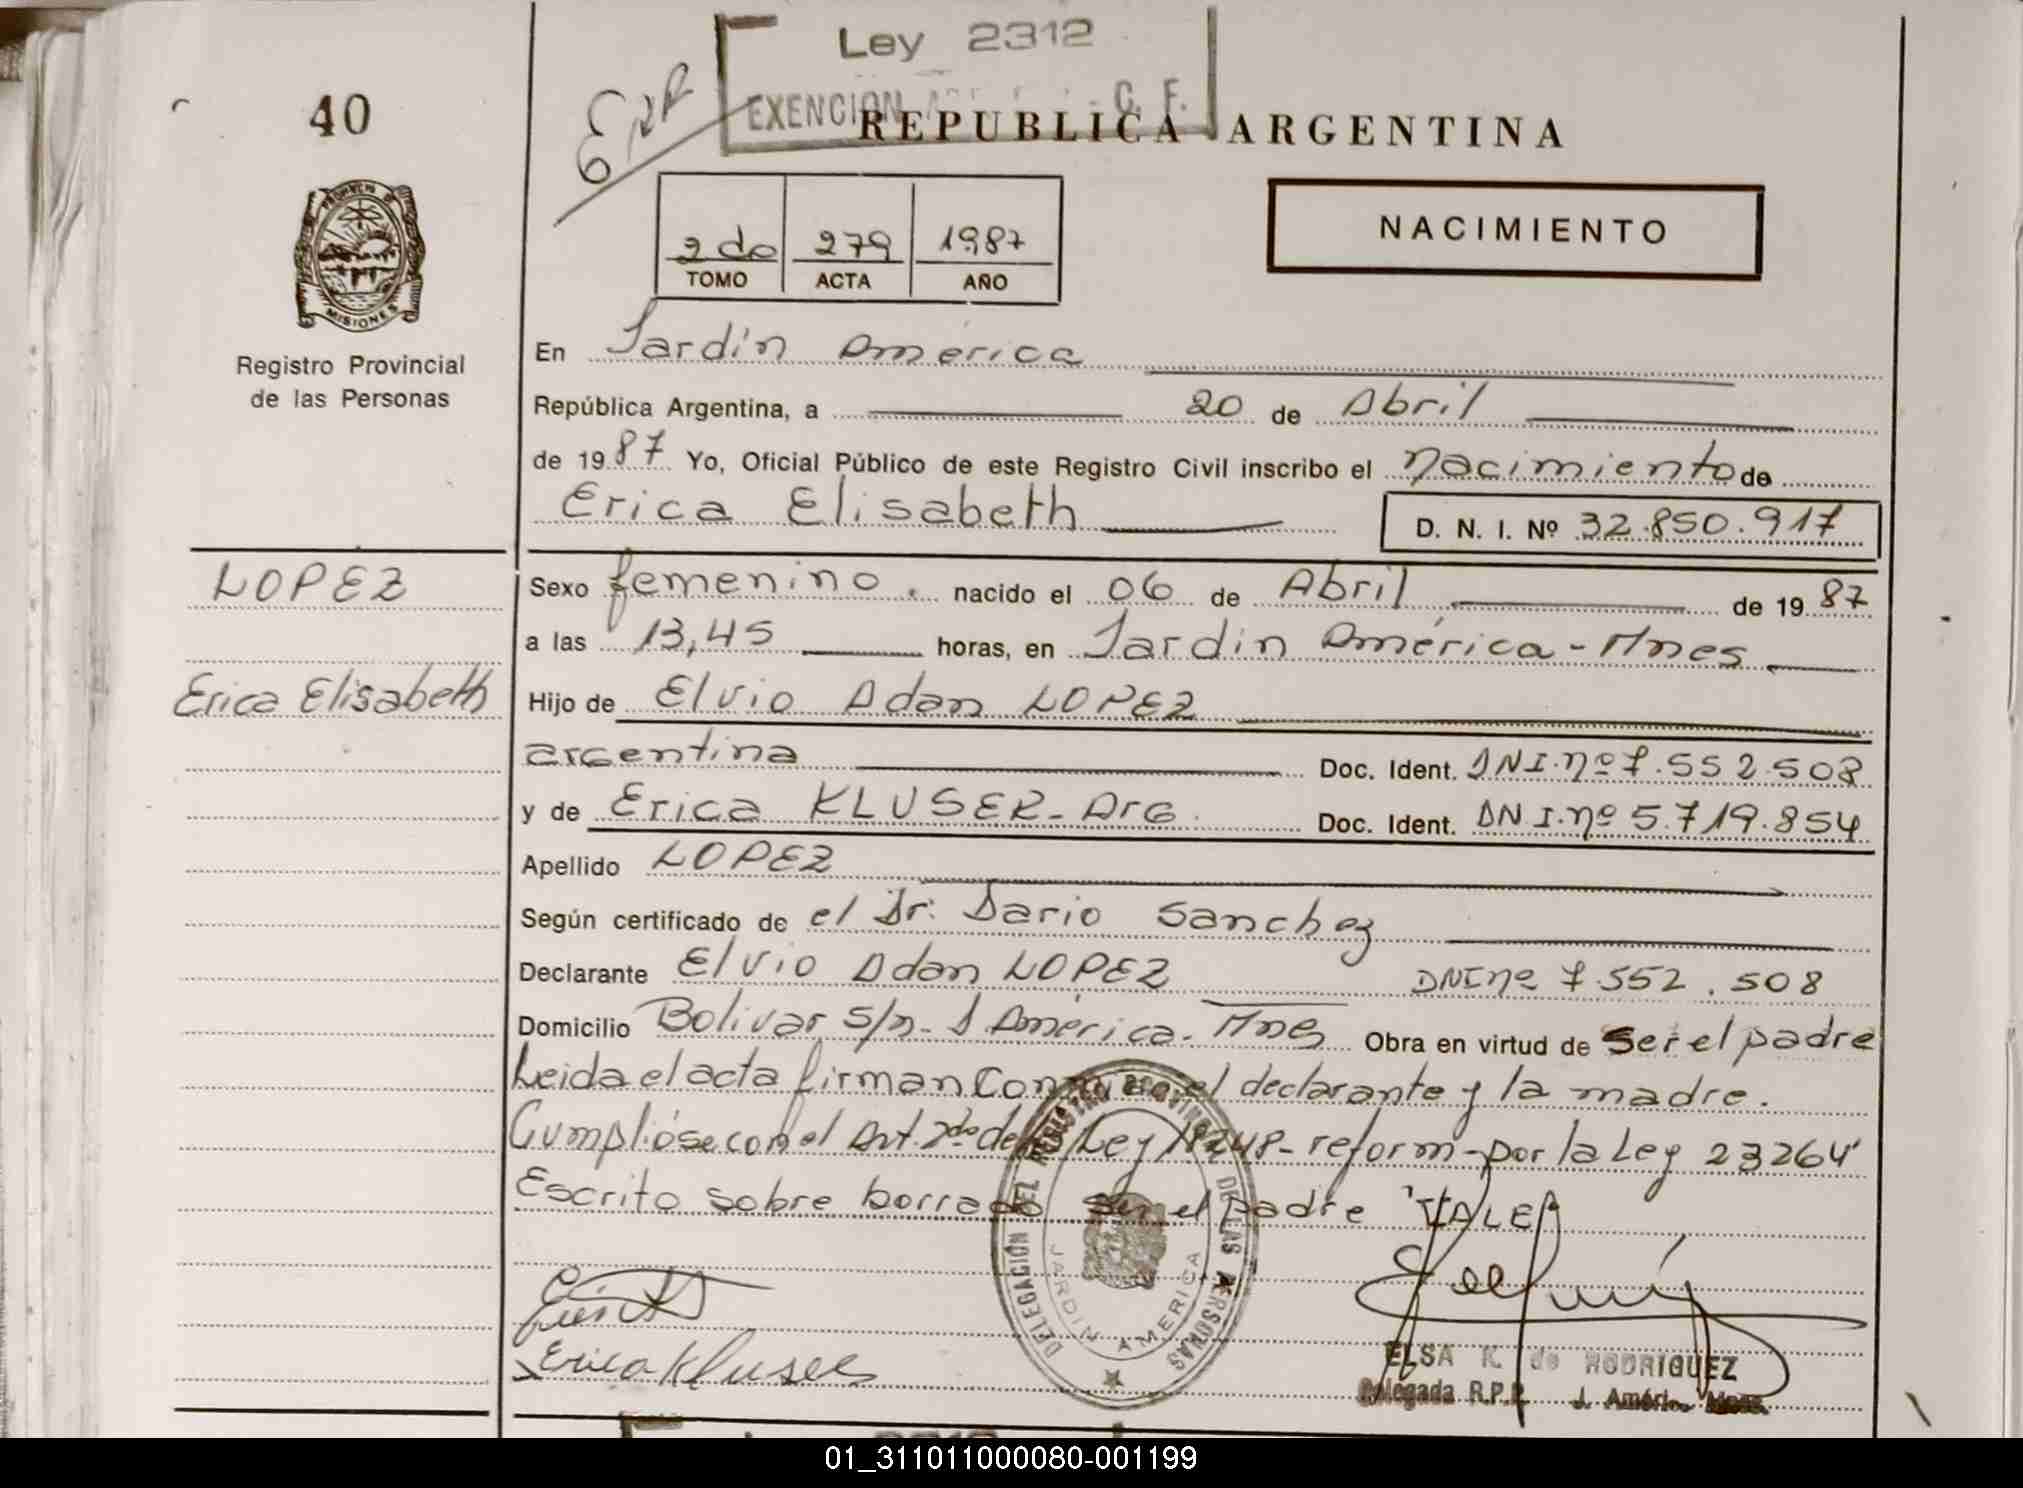 Ley 2312
EXENCION C. F.
40
REPUBLICA ARGENTINA
2do 279 1987
TOMO ACTA AÑO
NACIMIENTO
PROVINCIA DE
MISIONES
Registro Provincial
de las Personas
En Jardín América
República Argentina, a 20 de Abril
de 1987 Yo, Oficial Público de este Registro Civil inscribo el nacimiento de
Erica Elisabeth
D. N. I. Nº 32.850.917
LOPEZ
Erica Elisabeth
Sexo femenino. nacido el 06 de Abril de 1987
a las 13,45 horas, en Jardin América - Mnes
Hijo de Elvio Adan LOPEZ
argentina Doc. Ident. DNI.nº 7.552.508
y de Erica KLUSER - Arg. Doc. Ident. DNI.nº 5.719.854
Apellido LOPEZ
Según certificado de el Dr. Dario Sanchez
Declarante Elvio Adan LOPEZ DNI nº 7.552.508
Domicilio Bolivar s/n - J. América - Mnes Obra en virtud de ser el padre
Leida el acta firman conmigo el declarante y la madre.
Cumplióse con el Art. 2do de la Ley 18248 - reform - por la Ley 23264
Escrito sobre borrado ser el padre VALE
DELEGACIÓN DEL REGISTRO PROVINCIAL DE LAS PERSONAS
JARDIN AMERICA
Erica Kluser
ELSA K. de RODRIGUEZ
Delegada R.P.P. J. Améric. Mnes.
01_311011000080-001199